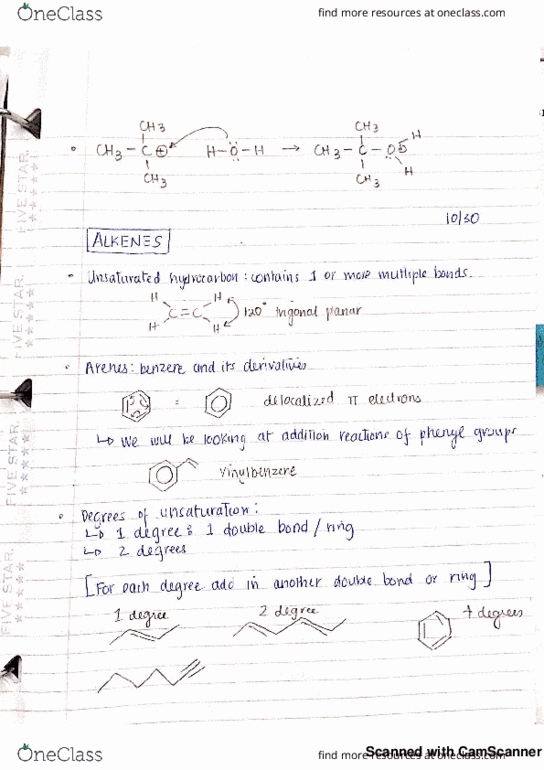 OneClass
find more resources at oneclass.com
CH3
CH3 – C⊕ H-Ö-H → CH3 – C – O
CH3
CH3
CH3
H
H
10/30
ALKENES
Unsaturated hydrocarbon: contains 1 or more multiple bonds.
H H
C=C 120° trigonal planar
H H
Arenes: benzene and its derivatives
= delocalized π electrons
↳ We will be looking at addition reactions of phenyl groups
vinylbenzene
Degrees of unsaturation:
↳ 1 degree: 1 double bond / ring
↳ 2 degrees
[For each degree add in another double bond or ring]
1 degree 2 degree 4 degrees
FIVE STAR.
FIVE STAR.
FIVE STAR.
FIVE STAR.
OneClass
find more resources at oneclass.com
Scanned with CamScanner